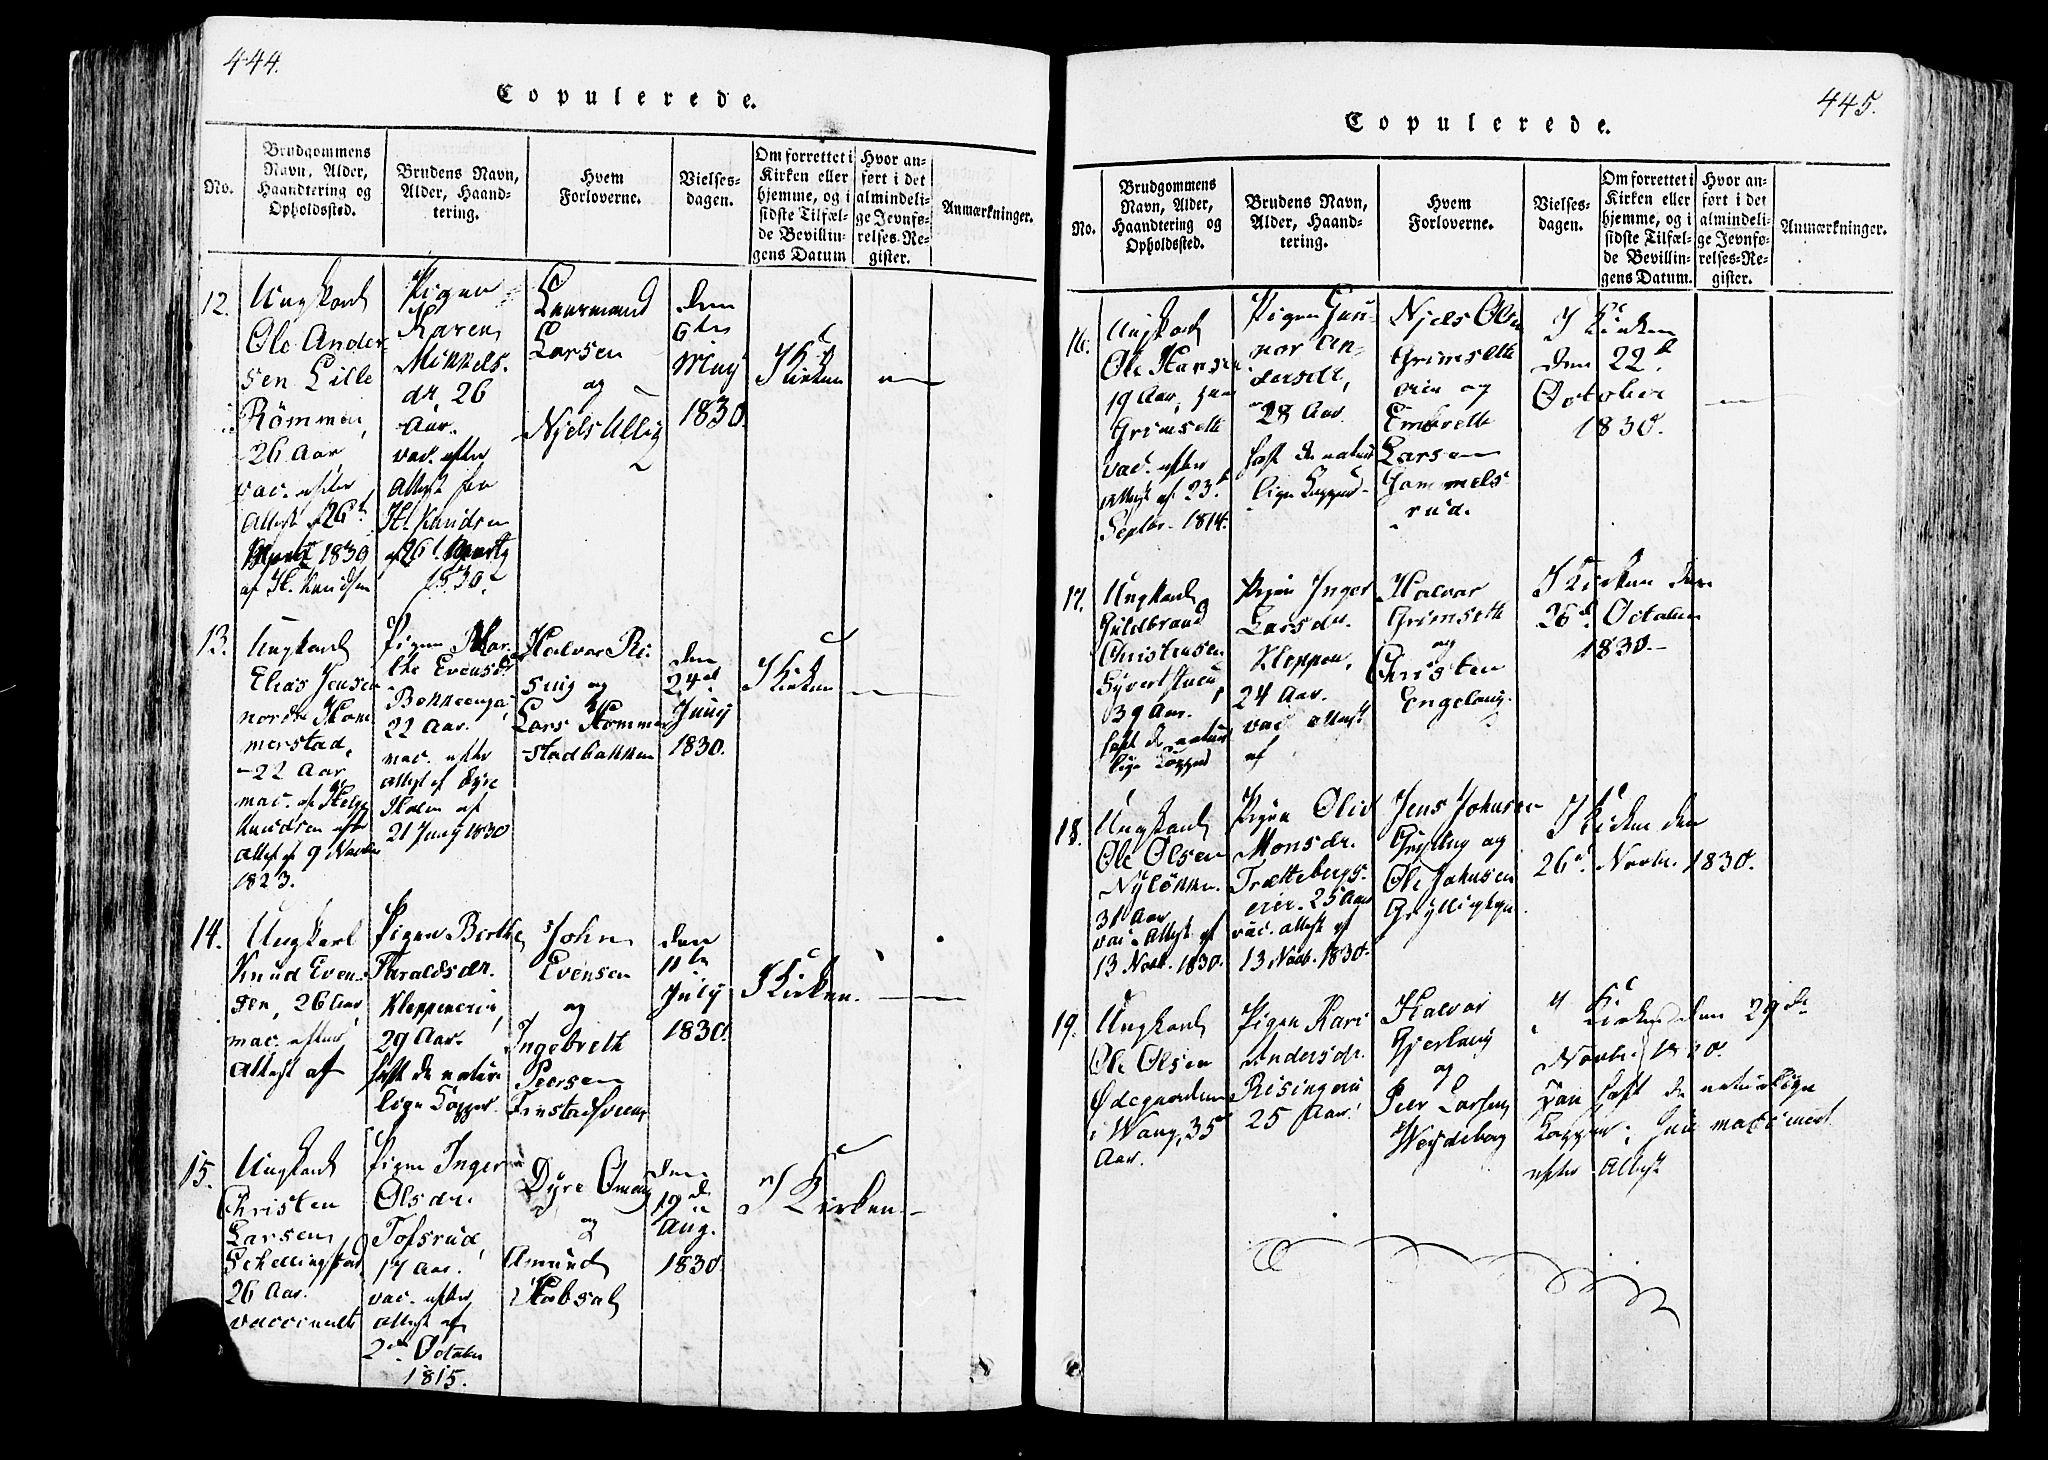 444.
Copulerede.
No.
Brudgommens
Navn, Alder,
Haandtering og
Opholdssted.
Brudens Navn,
Alder, Haand-
tering.
Hvem
Forloverne.
Vielses-
dagen.
Om forrettet i
Kirken eller
hjemme, og i
sidste Tilfæl-
de Bevillin-
gens Datum
Hvor an-
ført i det
almindeli-
ge Jevnfø-
relses-Re-
gister.
Anmærkninger.
12.
Ungkarl
Ole Ander-
sen Lille
Römmen,
26 Aar
vac. efter
Attest af 26t
1830
af H. Knudsen
Pigen
Karen
Mikkels-
dr 26
Aar.
vac. efter
Attest fra
H. Knudsen
af 26t
1830
Leursmand
Larsen
og
Njels Ullig
den
6te
May
1830.
I Kirken
13.
Ungkarl
Elias Jensen
nordre Hom-
merstad,
22 Aar
vac. af Helge
Knudsen efter
Attest af 9 Novbr
1823.
Pigen Mar-
the Evensdr
Bekkeenga,
22 Aar.
vac. efter
Attest af Dyre
Holen af
21 Juny 1830
Halvor Ri-
sing og
Lars Hommer-
stadbakken
den
24de
Juny
1830.
I Kirken
14.
Ungkarl
Knud Even-
sen, 26 Aar
vac. efter
Attest af
Pigen Berthe
Haraldsdr.
Kleppenerie,
29 Aar.
haft de natur-
lige Kopper.
John
Evensen
og
Ingebreth
Peersen
Finstadsveen
den
11te
July
1830.
I Kirken.
15.
Ungkarl
Christen
Larsen
26 Aar.
vaccineret
Pigen Inger
Olsdr.
Tofsrud,
17 Aar.
vac. efter
Attest af
2den October
1815.
Dyre Omang
og
Amund
Habsal
den
19de
Aug.
1830
I Kirken.
445.
Copulerede.
No.
Brudgommens
Navn, Alder,
Haandtering og
Opholdssted.
Brudens Navn,
Alder, Haand-
tering.
Hvem
Forloverne.
Vielses-
dagen.
Om forrettet i
Kirken eller
hjemme, og i
sidste Tilfæl-
de Bevillin-
gens Datum.
Hvor an-
ført i det
almindeli-
ge Jevnfø-
relses-Re-
gister.
Anmærkninger.
16.
Ungkarl
Ole Hansen
19 Aar,
Grimseth
vac. efter
Attest af 23d
Septbr. 1814.
Pigen Gun-
nor An-
dersdr,
28 Aar.
haft de natur-
lige Kopper
Njels Olsen
Grimseth
erie og
Embreth
Larsen
Gammels-
rud.
I Kirken
den 22d
October
1830.
17.
Ungkarl
Guldbrand
Christensen
39 Aar.
haft de natur-
lige Kopper
Pigen Inger
Larsdr.
Kleppen,
24 Aar.
vac. Attest
af
Halvor
Grimseth
og
Christen
Engelaug.
I Kirken den
26d October
1830.
18.
Ungkarl
Ole Olsen
Nylökken.
31 Aar
vac. Attest af
13 Novb. 1830.
Pigen Oliv
Monsdr.
Trætteberg-
erier. 25 Aar
vac. Attest af
13 Novb. 1830.
Jens Johnsen
Grylling og
Ole Johnsen
I Kirken den
26d Novbr. 1830.
19.
Ungkarl
Ole Olsen
Ødegaarden
i Wang, 35
Aar.
Pigen Kari
Andersdr.
Risingerie
25 Aar.
Halvor
Gjerlaug
og
Peer Larsen
Wejdeborg
I Kirken den 29de
Novbr. 1830.
Han haft de naturlige
Kopper; hun vaccineret
efter Attest